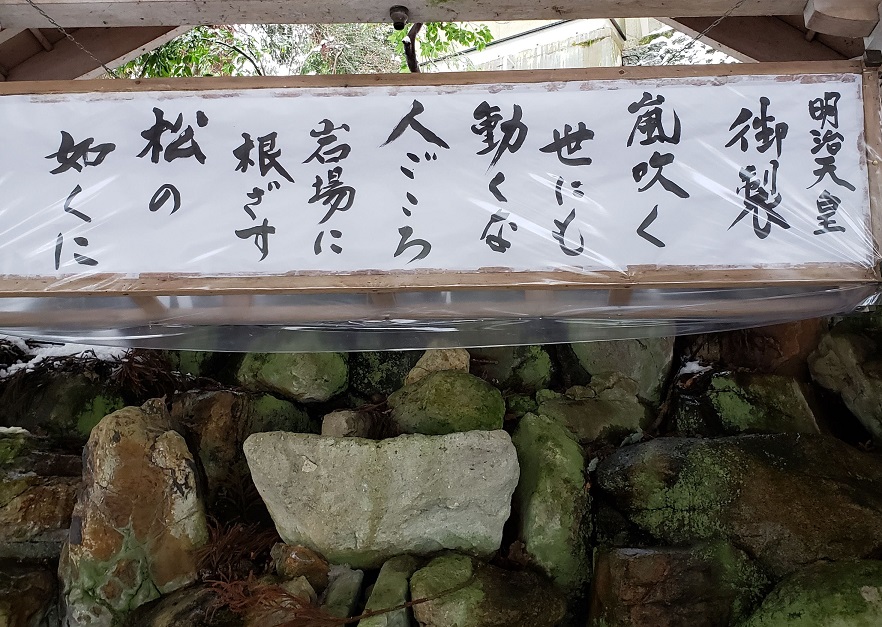 明治天皇
御製
嵐吹く
世にも
動くな
人ごころ
岩場に
根ざす
松の
如くに